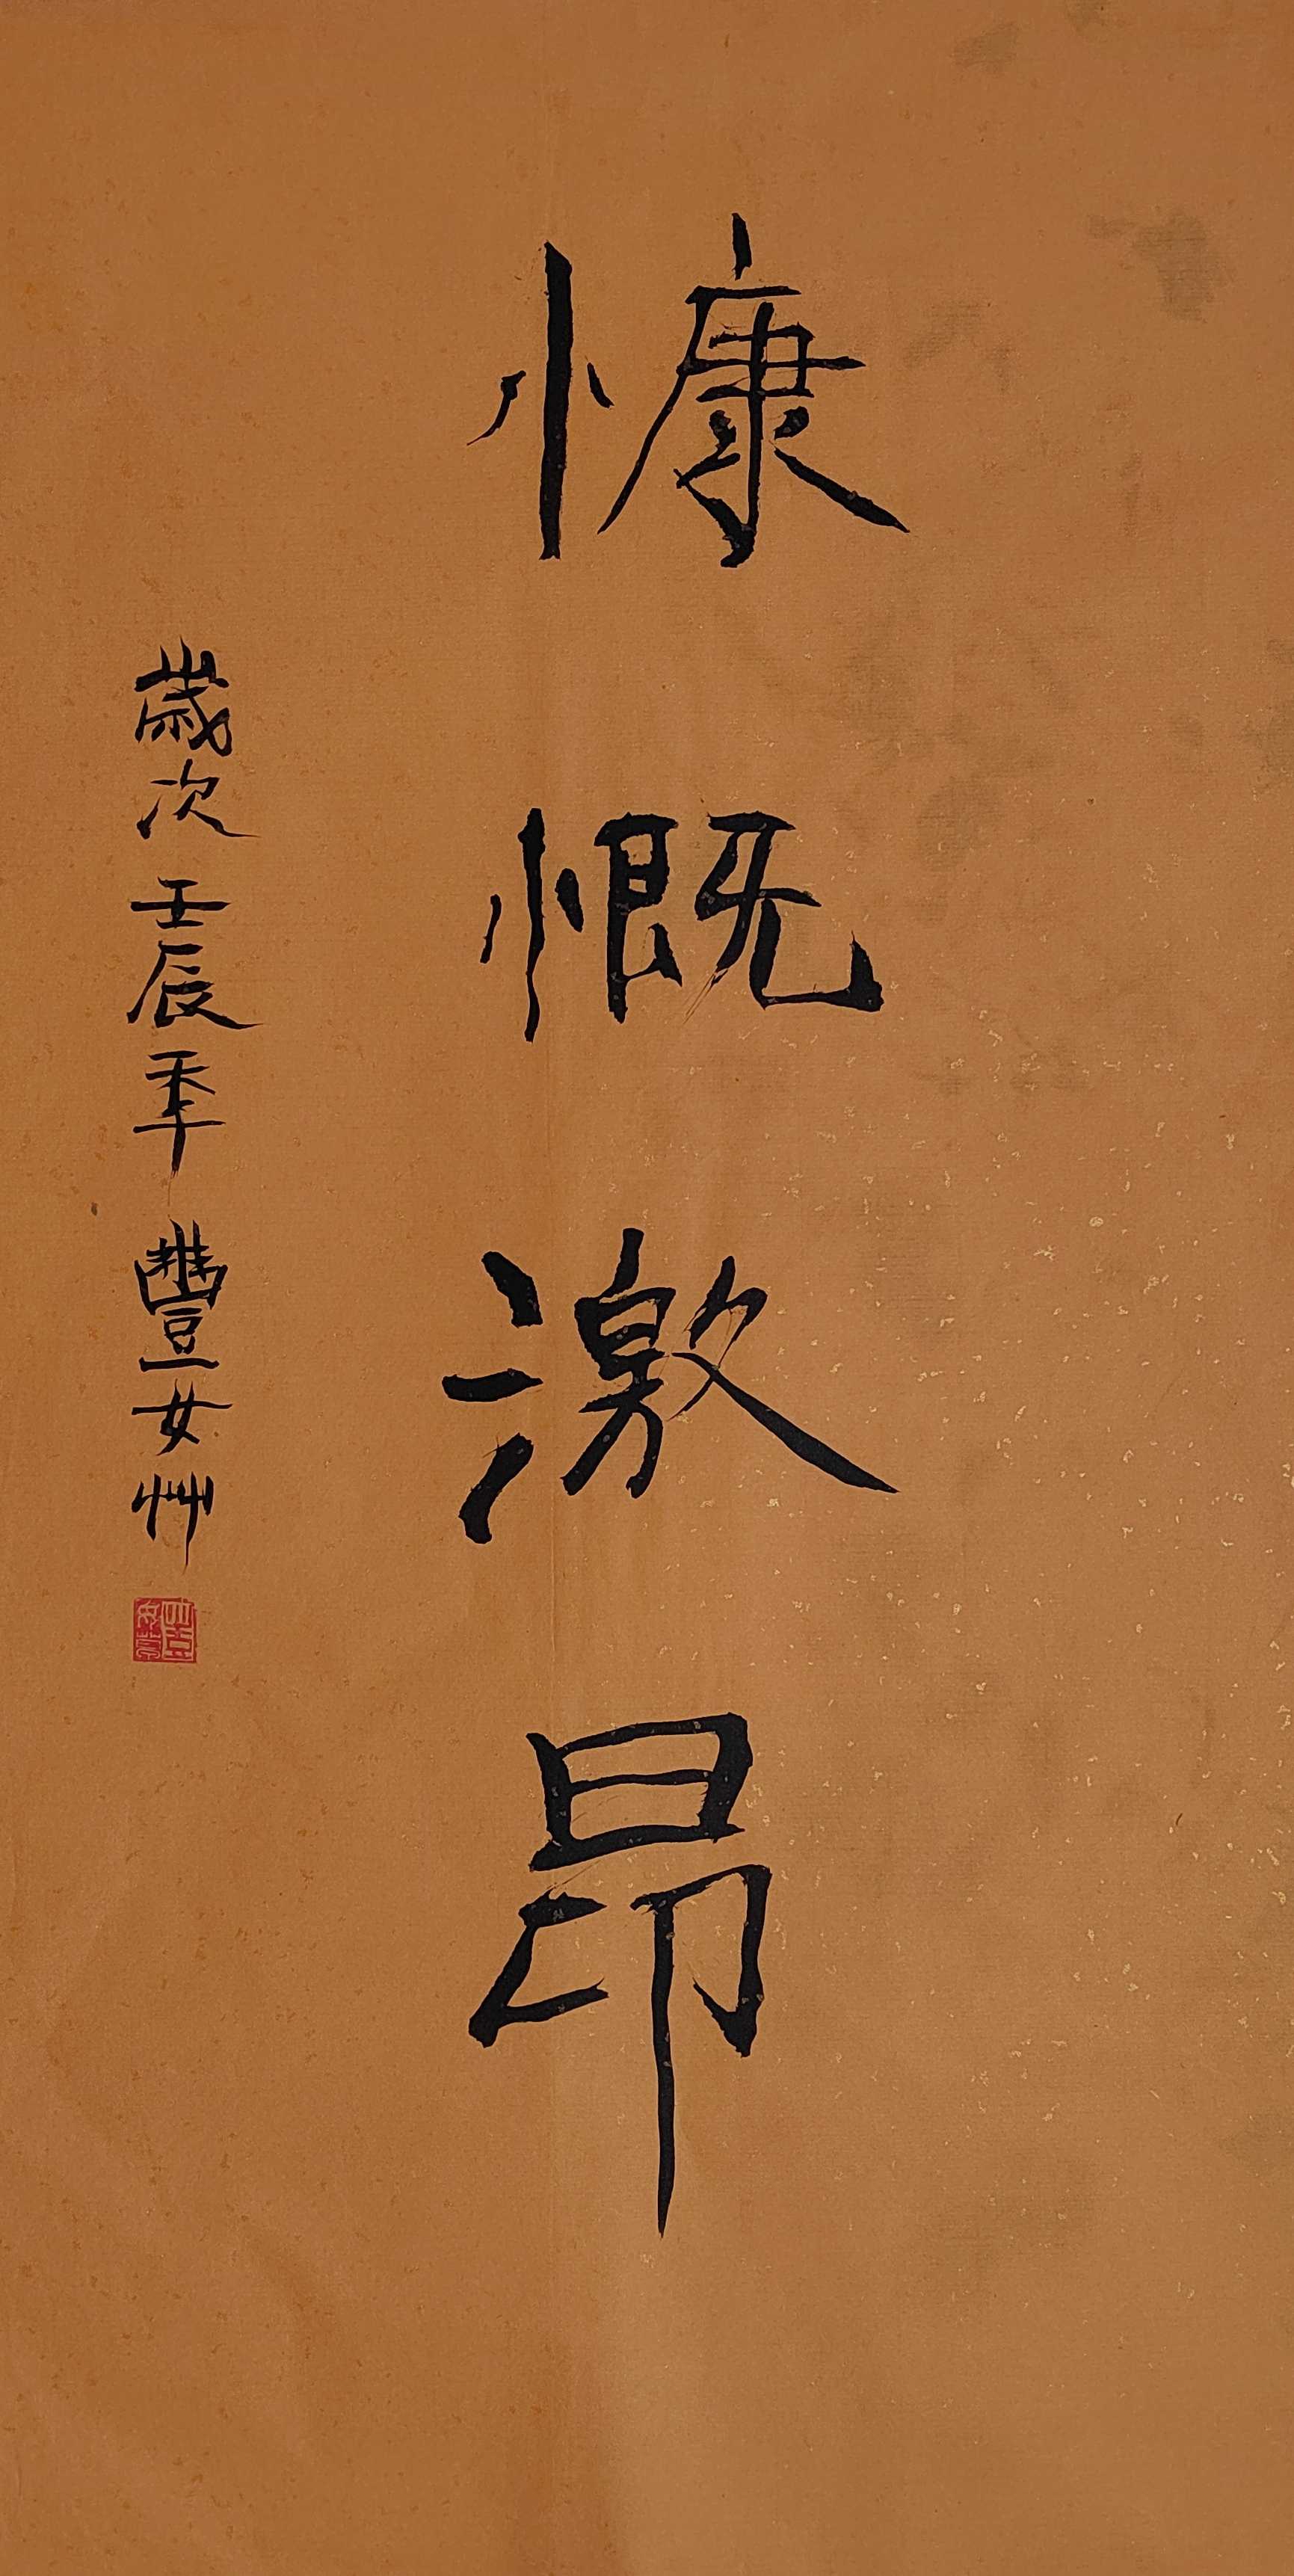 慷慨激昂
歲次壬辰年豐女艸